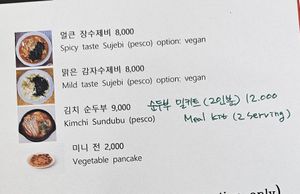 얼큰 장수제비 8,000
Spicy taste Sujebi (pesco) option: vegan
맑은 감자수제비 8,000
Mild taste Sujebi (pesco) option: vegan
김치 순두부 9,000 순두부 밀키트 (2인분) 12.000
Kimchi Sundubu (pesco) Meal kit (2 serving)
미니 전 2,000
Vegetable pancake
only)